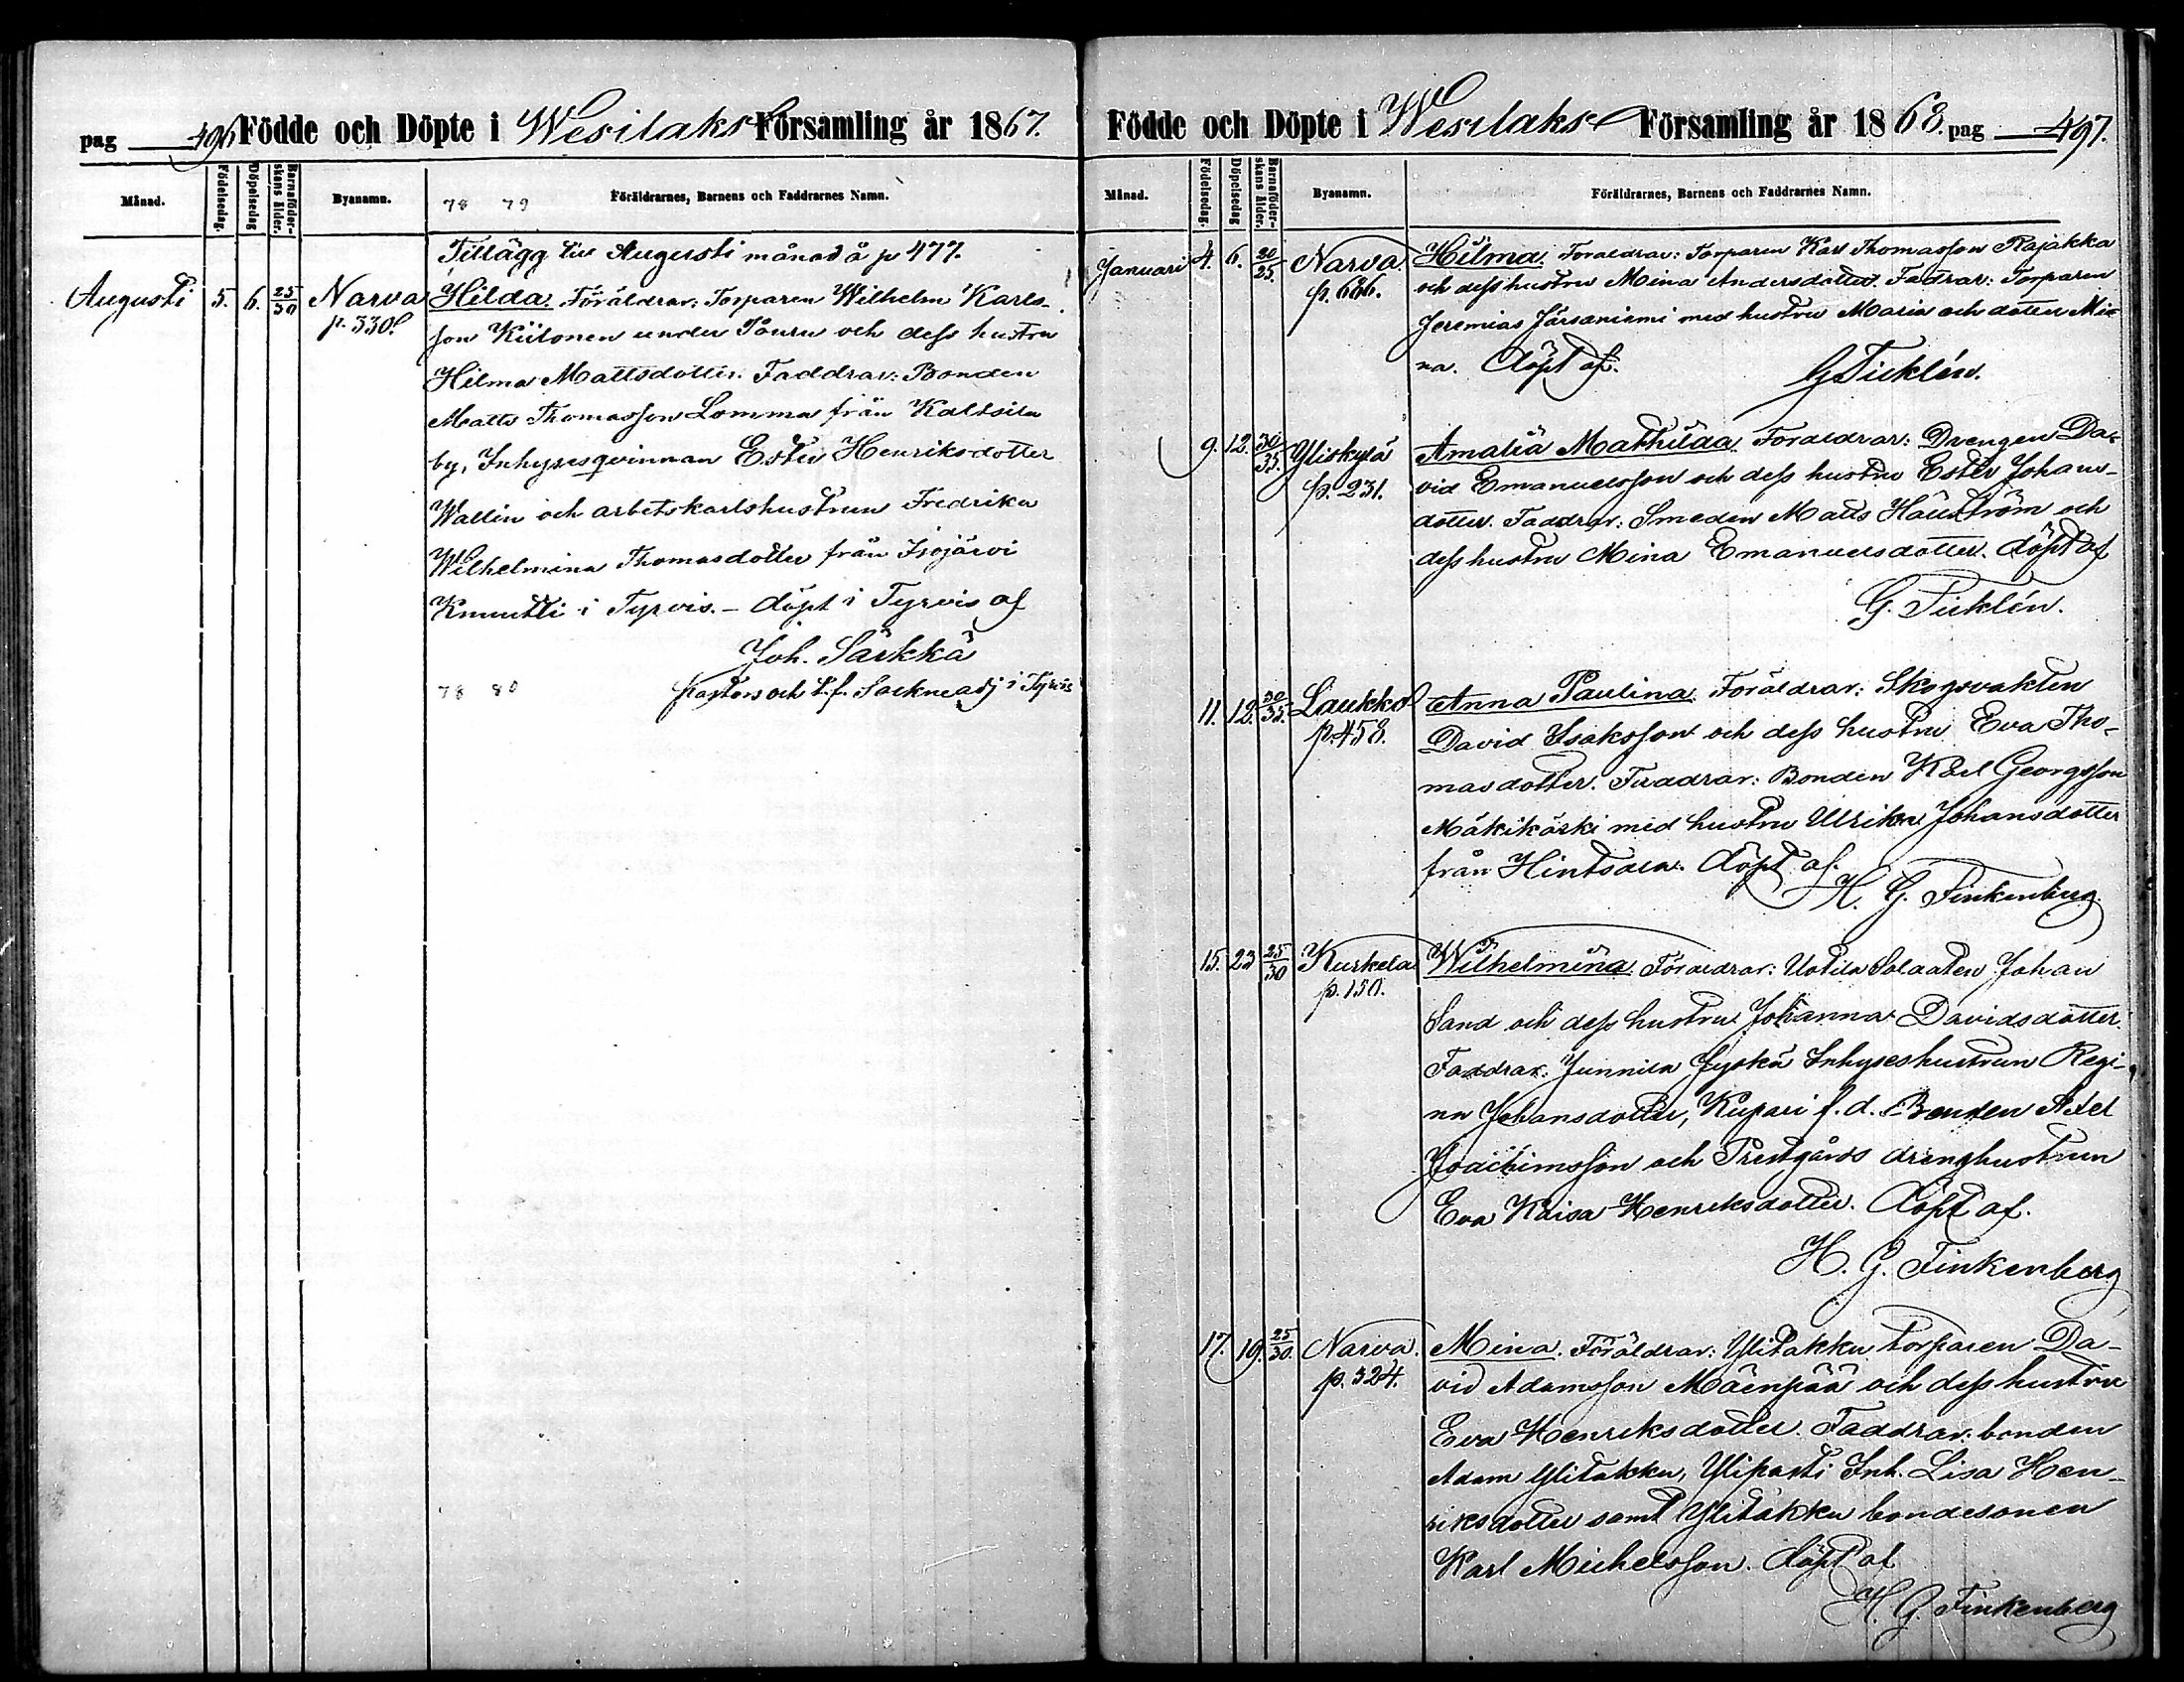 pag 496 Födde och Döpte i Wesilaks Församling år 1867.
Månad. Födelsedag. Döpelsedag Barnaföderskans ålder. Byanamn. 78 79 Föräldrarnes, Barnens och Faddrarnes Namn.
Tillägg till Augusti månad å p 477.
Augusti 5. 6. 25/30 Narva Hilda. Föräldrar: Torparen Wilhelm Karls-
p. 330. son Kiilonen under Pouru och dess hustru
Hilma Mattsdotter. Faddrar: Bonden
Matts Thomasson Lomma från Kaltsila
by, Inhysesqvinnan Ester Henriksdotter
Wallin och arbetskarlshustrun Fredrika
Wilhelmina Thomasdotter från Isojärvi
Knuutti i Tyrvis. – döpt i Tyrvis af
Joh. Särkkä
78 80 Pastors och t.f. Sockneadj i Tyrvis
Födde och Döpte i Wesilaks Församling år 1868. pag 497.
Månad. Födelsedag. Döpelsedag Barnaföderskans ålder. Byanamn. Föräldrarnes, Barnens och Faddrarnes Namn.
Januari 4. 6. 20/25. Narva Hilma. Föräldrar: Torparen Karl Thomasson Rajakka
p. 636. och dess hustru Mina Andersdotter. Fadrar: Torparen
Jeremias Järsäniemi med hustru Maria och dotter Mi-
na. Döpt af.
G Ticklén.
9. 12. 30/35. Yliskylä Amalia Mathilda Föräldrar: Drengen Da-
p. 231. vid Emanuelsson och dess hustru Ester Johans-
dotter. Faddrar: Smeden Matts Hällström och
dess hustru Mina Emanuelsdotter. döpt af
G. Ticklén.
11. 12. 30/35. Laukko Anna Paulina. Föräldrar: Skogsvakten
p. 458. David Isaksson och dess hustru Eva Tho-
masdotter. Faddrar: Bonden Karl Georgsson
Mäkikäski med hustru Ulrika Johansdotter
från Hintsala. Döpt af.
H. G. Finkenberg
15. 23 25/30 Kurkela Wilhelmina. Föräldrar: Uotila Soldaten Johan
p. 150. Sand och dess hustru Johanna Davidsdotter.
Faddrar: Junnila Inhyseshustrun Regi-
na Johansdotter, Kupari f.d. Bonden Axel
Joachimsson och Prestgårds drenghustrun
Eva Kaisa Henriksdotter. Döpt af.
H. G. Finkenberg
17. 19. 25/30. Narva. Mina. Föräldrar: Ylitakku torparen Da-
p. 324. vid Adamsson Mäenpää och dess hustru
Eva Henriksdotter. Faddrar: bonden
Adam Ylitakku, Yliparti Inh. Lisa Hen-
riksdotter samt Ylitakku bondesonen
Karl Michelsson. Döpt af
H. G. Finkenberg